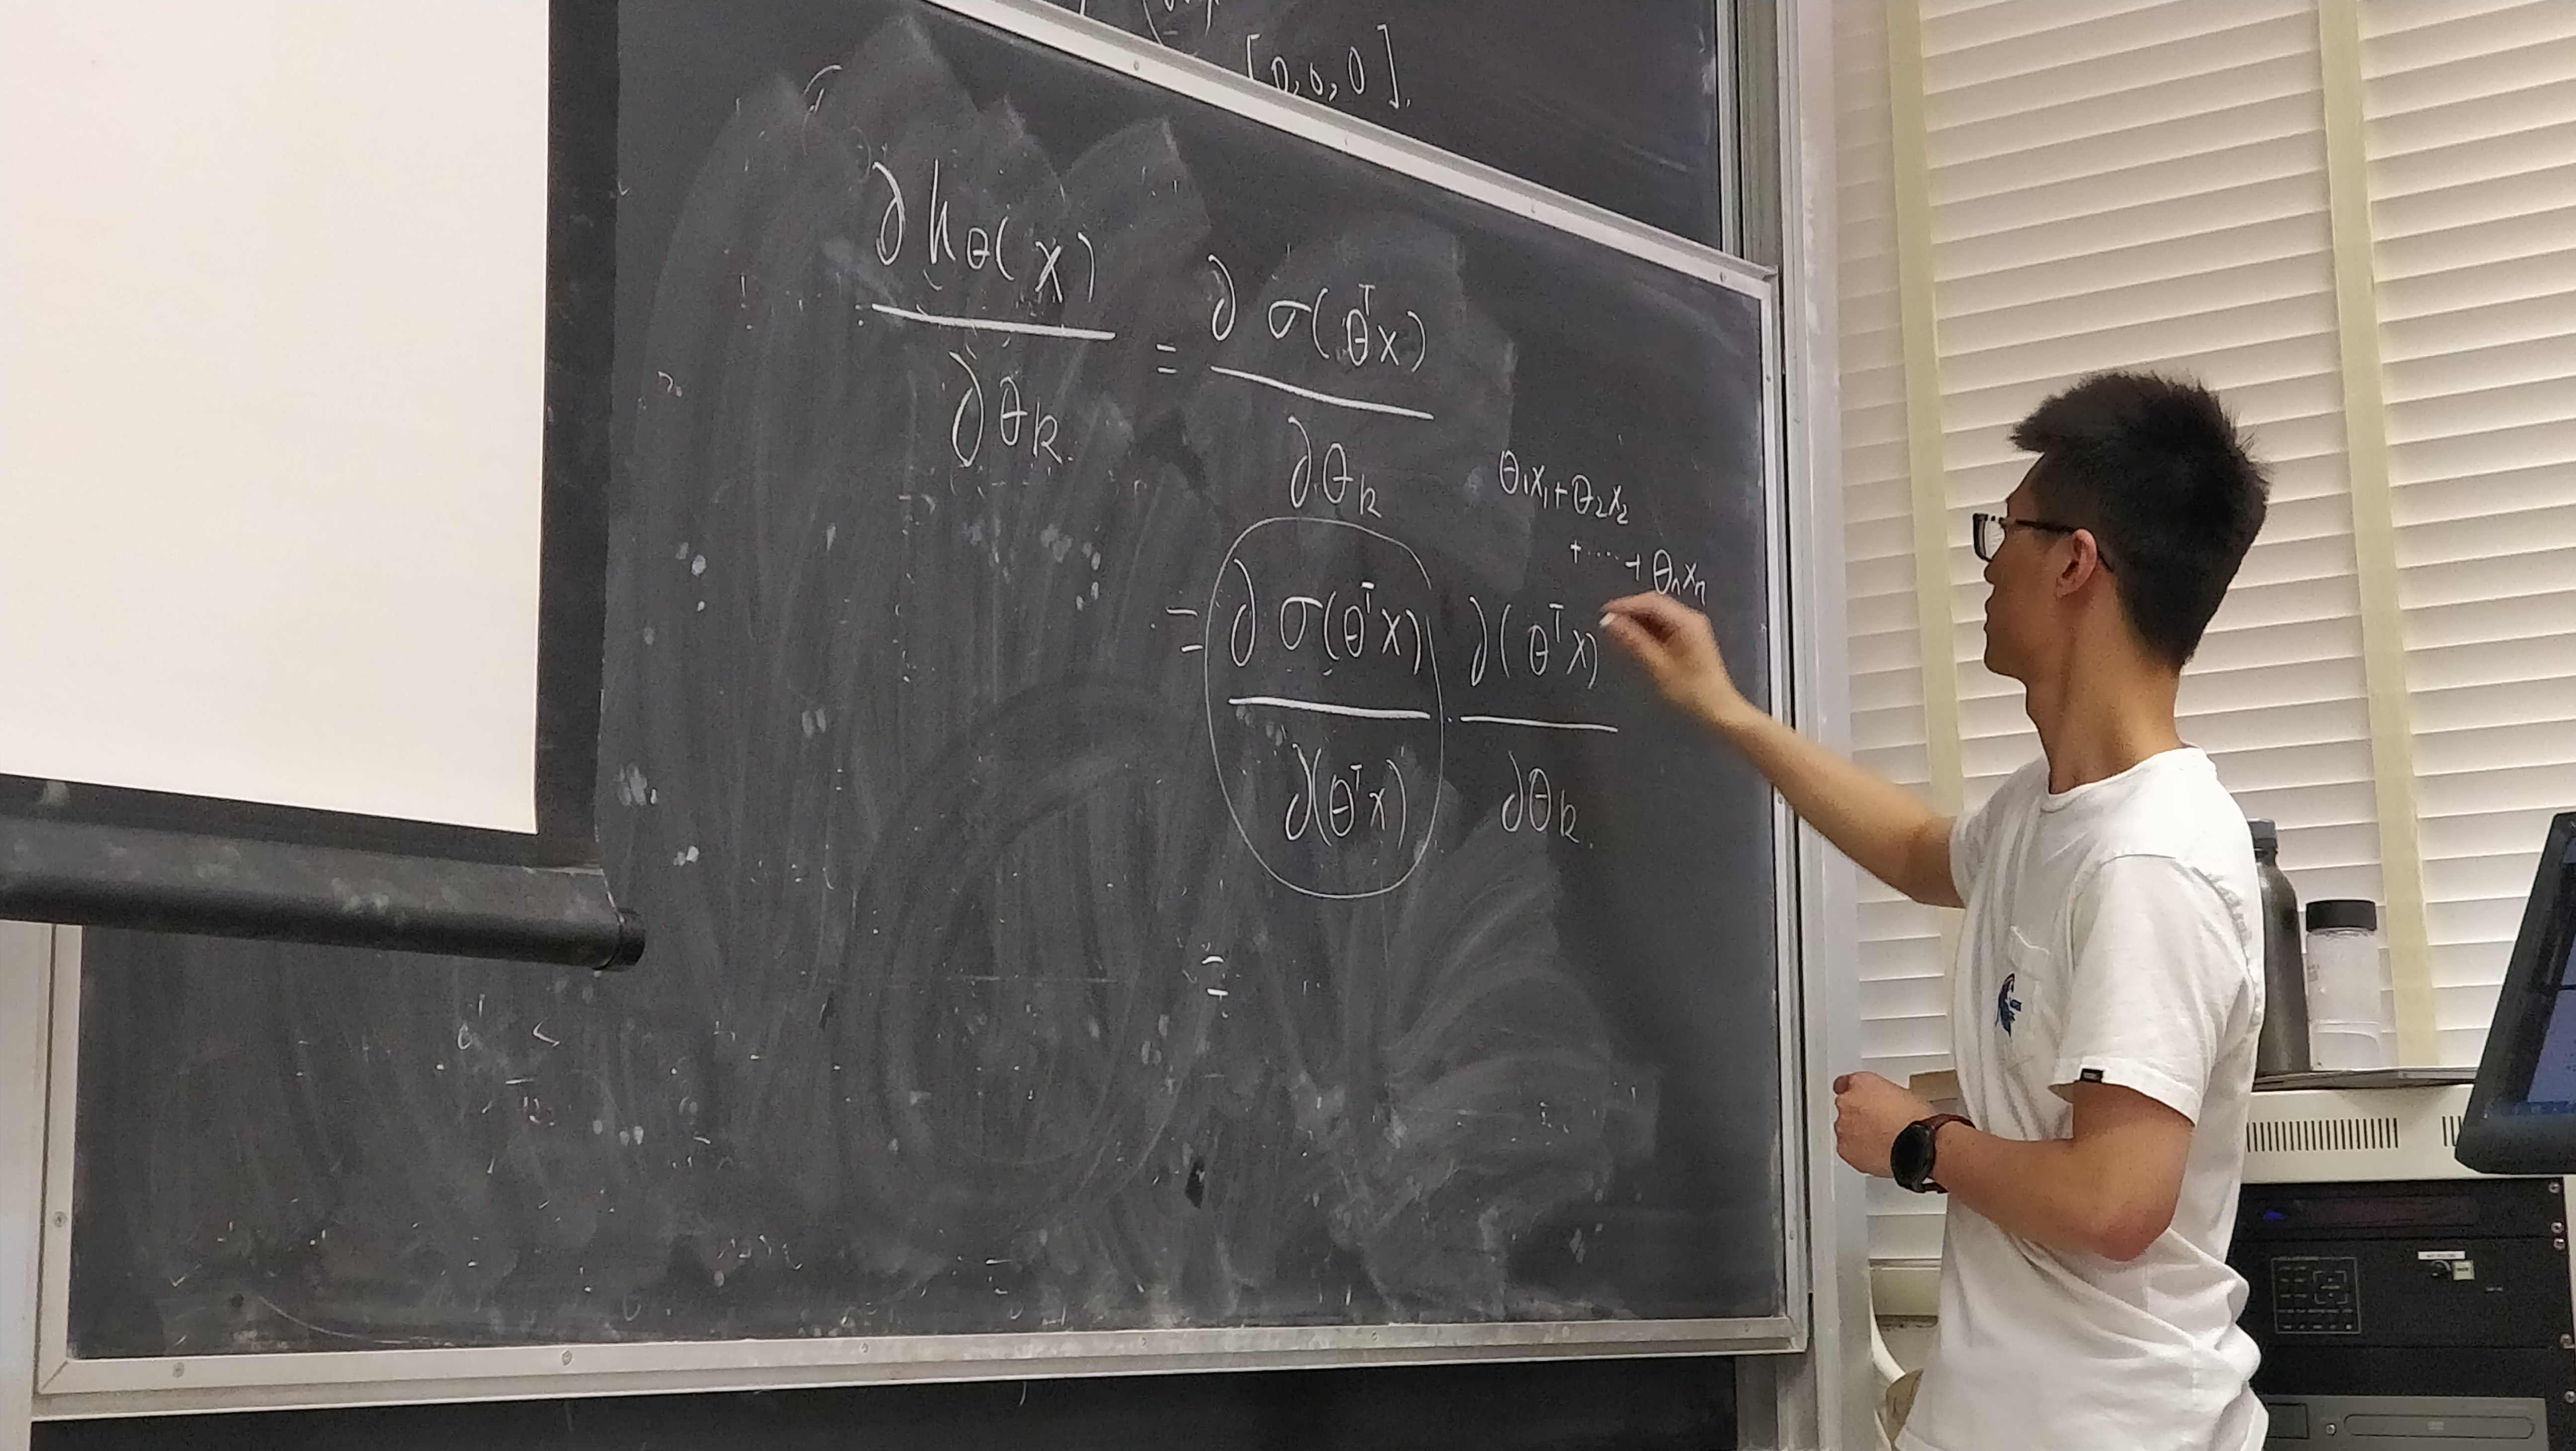 [0, 0, 0].
∂ hθ(x) / ∂θk = ∂ σ(θᵀx) / ∂θk
θ₁x₁ + θ₂x₂
+ ..... + θₙxₙ
= ∂ σ(θᵀx) / ∂(θᵀx) · ∂(θᵀx) / ∂θk
=